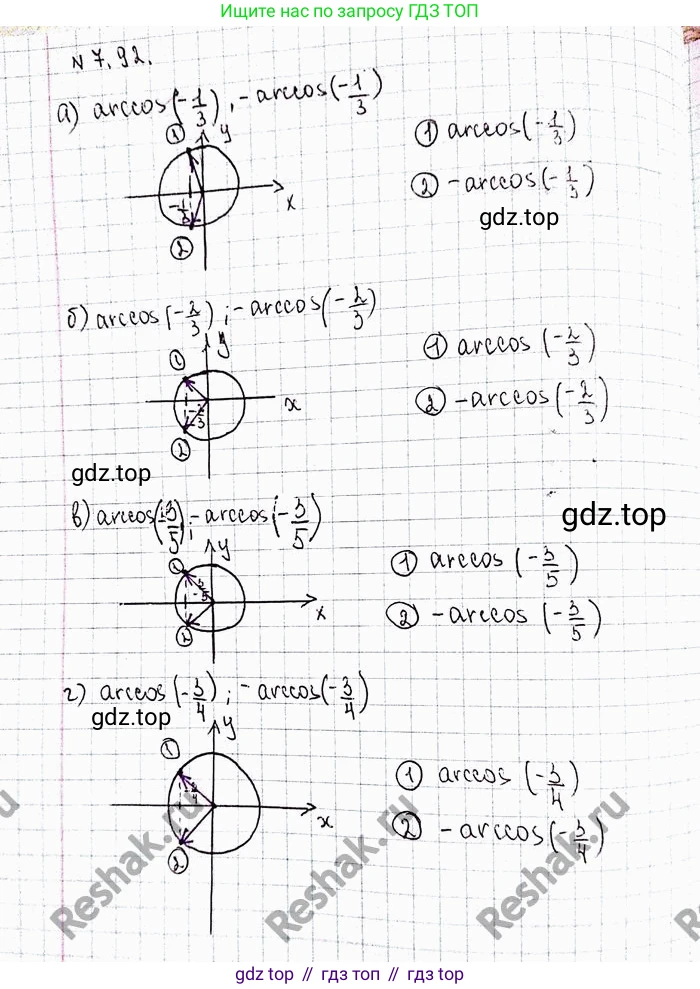 Ищите нас по запросу ГДЗ ТОП
N 7.92.
а) arccos(-1/3); -arccos(-1/3)
① y
x
-1/3
②
① arccos(-1/3)
② -arccos(-1/3)
gdz.top
б) arccos(-2/3); -arccos(-2/3)
① y
x
-2/3
②
① arccos(-2/3)
② -arccos(-2/3)
gdz.top
в) arccos(-3/5); -arccos(-3/5)
gdz.top
① y
-3/5
x
②
① arccos(-3/5)
② -arccos(-3/5)
г) arccos(-3/4); -arccos(-3/4)
gdz.top
① y
-3/4
x
②
① arccos(-3/4)
② -arccos(-3/4)
Reshak.ru
Reshak.ru
Reshak.ru
gdz top // гдз топ // gdz.top